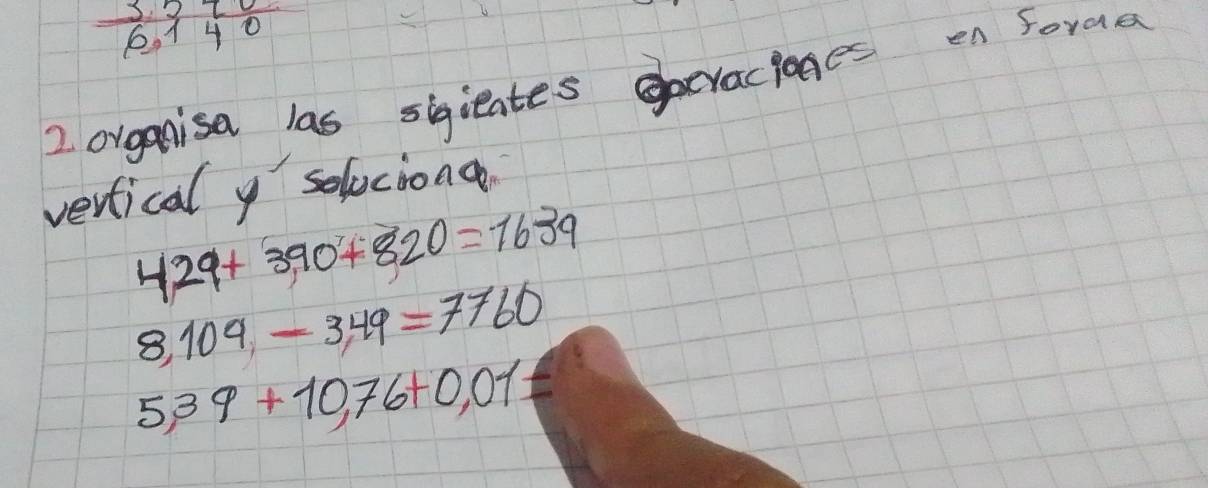 6,140
2 organisa las sigientes operaciones en forma
vertical y soluciona.
4,29+ 3,90+8,20=1639
8,109, - 3,49=7760
5,39 +10,76+0,01=